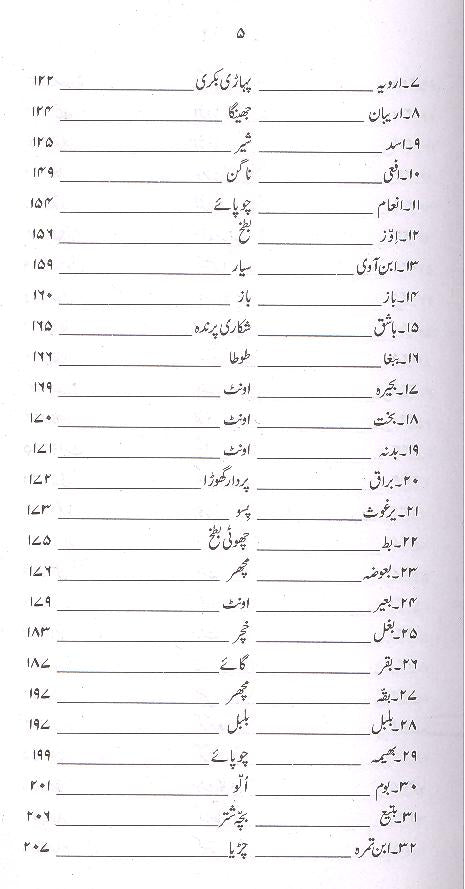 ۵
۷۔ارویہ ________ پہاڑی بکری ________ ۱۲۲
۸۔اربیان ________ جھینگا ________ ۱۲۴
۹۔اسد ________ شیر ________ ۱۲۵
۱۰۔افعی ________ ناگن ________ ۱۴۹
۱۱۔انعام ________ چوپائے ________ ۱۵۴
۱۲۔اوّز ________ بطخ ________ ۱۵۶
۱۳۔ابن آوی ________ سیار ________ ۱۵۹
۱۴۔باز ________ باز ________ ۱۶۰
۱۵۔باشق ________ شکاری پرندہ ________ ۱۶۵
۱۶۔ببغا ________ طوطا ________ ۱۶۶
۱۷۔بحیرہ ________ اونٹ ________ ۱۶۹
۱۸۔بخت ________ اونٹ ________ ۱۷۰
۱۹۔بدنہ ________ اونٹ ________ ۱۷۱
۲۰۔براق ________ پردار گھوڑا ________ ۱۷۲
۲۱۔برغوث ________ پسو ________ ۱۷۳
۲۲۔بط ________ چھوٹی بطخ ________ ۱۷۵
۲۳۔بعوضہ ________ مچھر ________ ۱۷۶
۲۴۔بعیر ________ اونٹ ________ ۱۷۹
۲۵۔بغل ________ خچر ________ ۱۸۳
۲۶۔بقر ________ گائے ________ ۱۸۷
۲۷۔بقّہ ________ مچھر ________ ۱۹۷
۲۸۔بلبل ________ بلبل ________ ۱۹۷
۲۹۔بھیمہ ________ چوپائے ________ ۱۹۹
۳۰۔بوم ________ اُلّو ________ ۲۰۱
۳۱۔بتیع ________ بچّہ شتر ________ ۲۰۶
۳۲۔ابن تمرہ ________ چڑیا ________ ۲۰۷